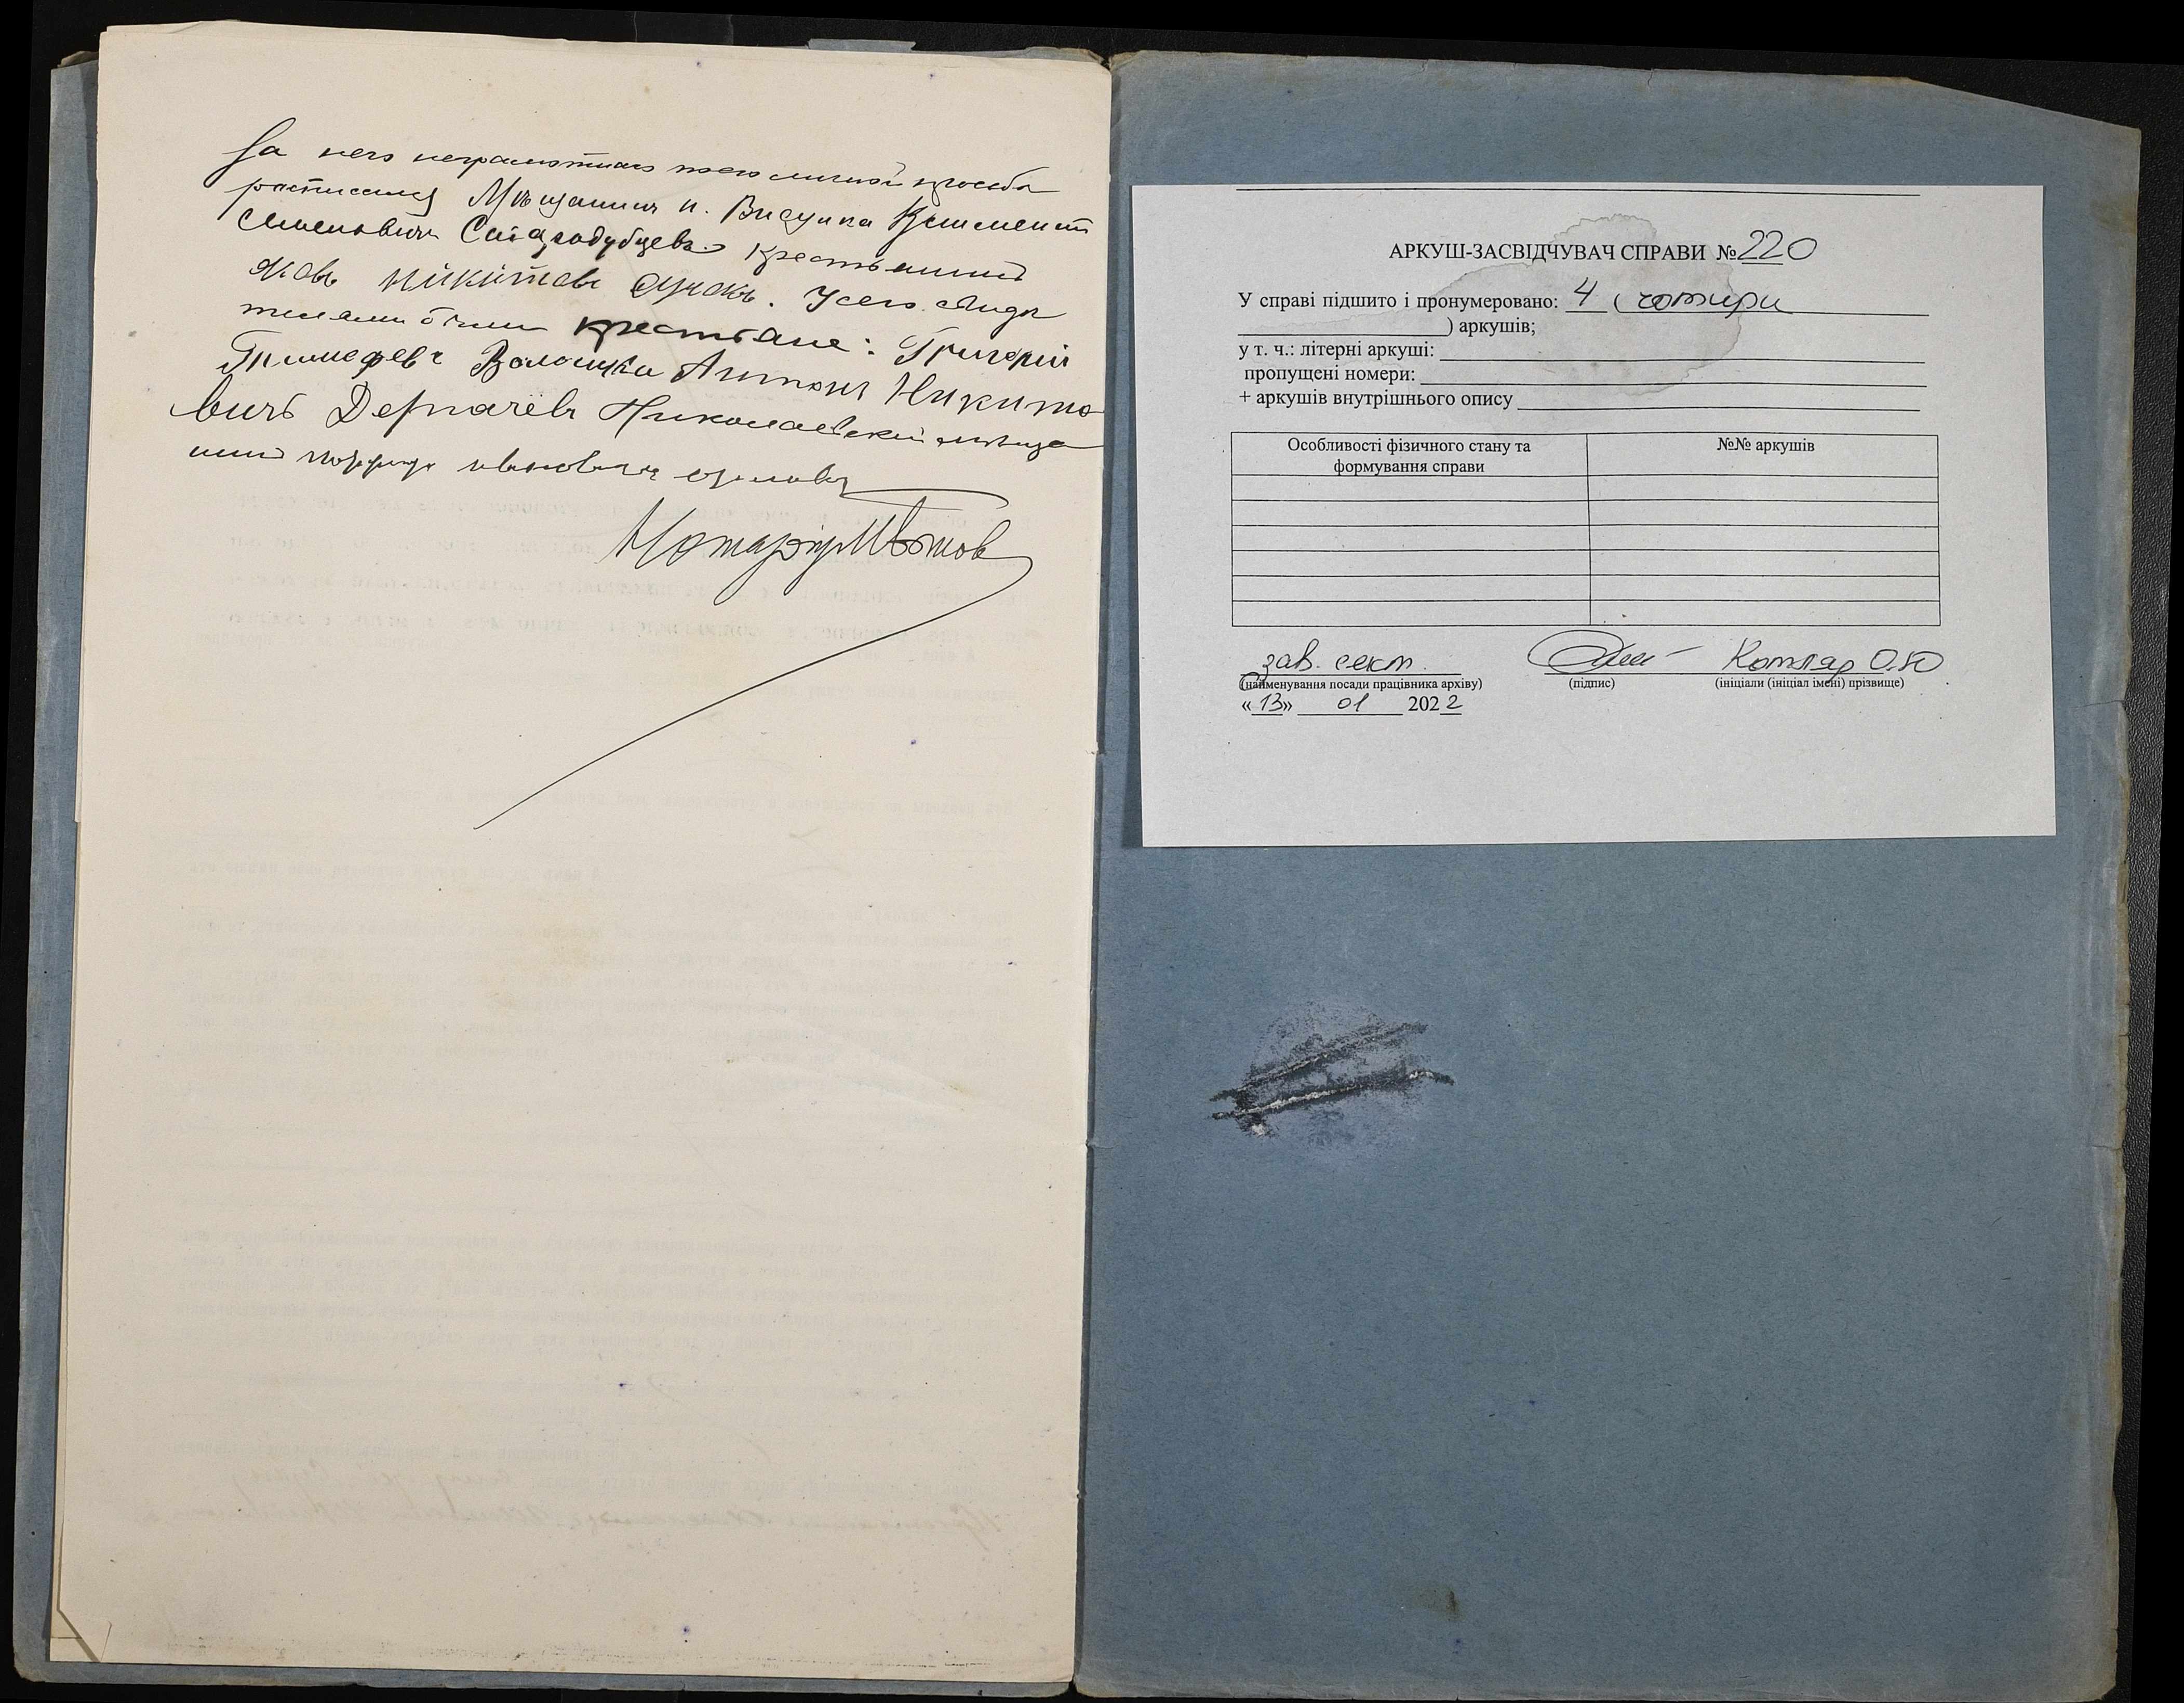 За него неграмотнаго по его личной просьбе
расписался Мещанинъ п. Висунка Климентъ
Семеновичъ Стародубцевъ крестьянинъ
Яковъ Никитовъ Сучокъ. У сего свиде
телями были крестьяне: Григорий
Тимофеевъ Волошка Антонъ Никито
вичъ Дергачёвъ Николаевский мѣща
нинъ Ивановичъ
Нотаріусъ
АРКУШ-ЗАСВІДЧУВАЧ СПРАВИ №220
У справі підшито і пронумеровано: 4 (чотири
) аркушів;
у т. ч.: літерні аркуші:
пропущені номери:
+ аркушів внутрішнього опису
Особливості фізичного стану та формування справи
№№ аркушів
зав. сект. Котляр О.Ю
(найменування посади працівника архіву) (підпис) (ініціали (ініціал імені) прізвище)
«13» 01 2022